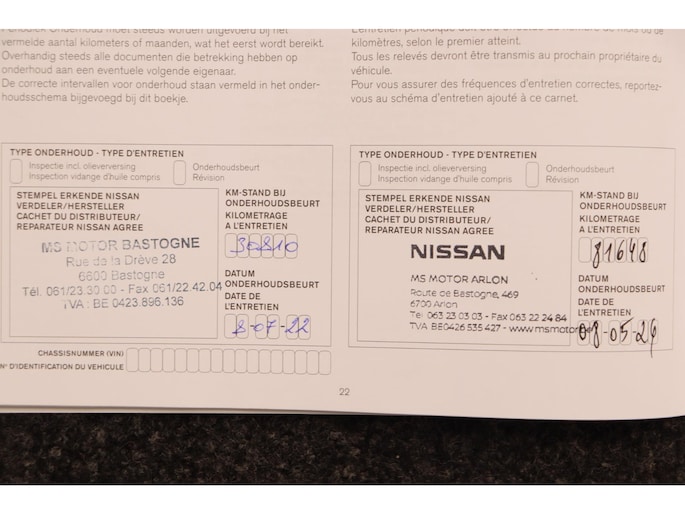 vermelde aantal kilometers of maanden, wat het eerst wordt bereikt.
Overhandig steeds alle documenten die betrekking hebben op
onderhoud aan een eventuele volgende eigenaar.
De correcte intervallen voor onderhoud staan vermeld in het onder-
houdsschema bijgevoegd bij dit boekje.
kilomètres, selon le premier atteint.
Tous les relevés devront être transmis au prochain propriétaire du
véhicule.
Pour vous assurer des fréquences d'entretien correctes, reportez-
vous au schéma d'entretien ajouté à ce carnet.
TYPE ONDERHOUD - TYPE D'ENTRETIEN
Inspectie incl. olieverversing
Inspection vidange d'huile compris
Onderhoudsbeurt
Révision
STEMPEL ERKENDE NISSAN
VERDELER/HERSTELLER
CACHET DU DISTRIBUTEUR/
REPARATEUR NISSAN AGREE
MS MOTOR BASTOGNE
Rue de la Drève 28
6600 Bastogne
Tél. 061/23.30.00 - Fax 061/22.42.04
TVA : BE 0423.896.136
KM-STAND BIJ
ONDERHOUDSBEURT
KILOMETRAGE
A L'ENTRETIEN
30810
DATUM
ONDERHOUDSBEURT
DATE DE
L'ENTRETIEN
8-07-22
CHASSISNUMMER (VIN)
N° D'IDENTIFICATION DU VEHICULE
TYPE ONDERHOUD - TYPE D'ENTRETIEN
Inspectie incl. olieverversing
Inspection vidange d'huile compris
Onderhoudsbeurt
Révision
STEMPEL ERKENDE NISSAN
VERDELER/HERSTELLER
CACHET DU DISTRIBUTEUR/
REPARATEUR NISSAN AGREE
NISSAN
MS MOTOR ARLON
Route de Bastogne, 469
6700 Arlon
Tél 063 23 03 03 - Fax 063 22 24 84
TVA BE0426 535 427 - www.msmotor.be
KM-STAND BIJ
ONDERHOUDSBEURT
KILOMETRAGE
A L'ENTRETIEN
81648
DATUM
ONDERHOUDSBEURT
DATE DE
L'ENTRETIEN
08-05-24
22